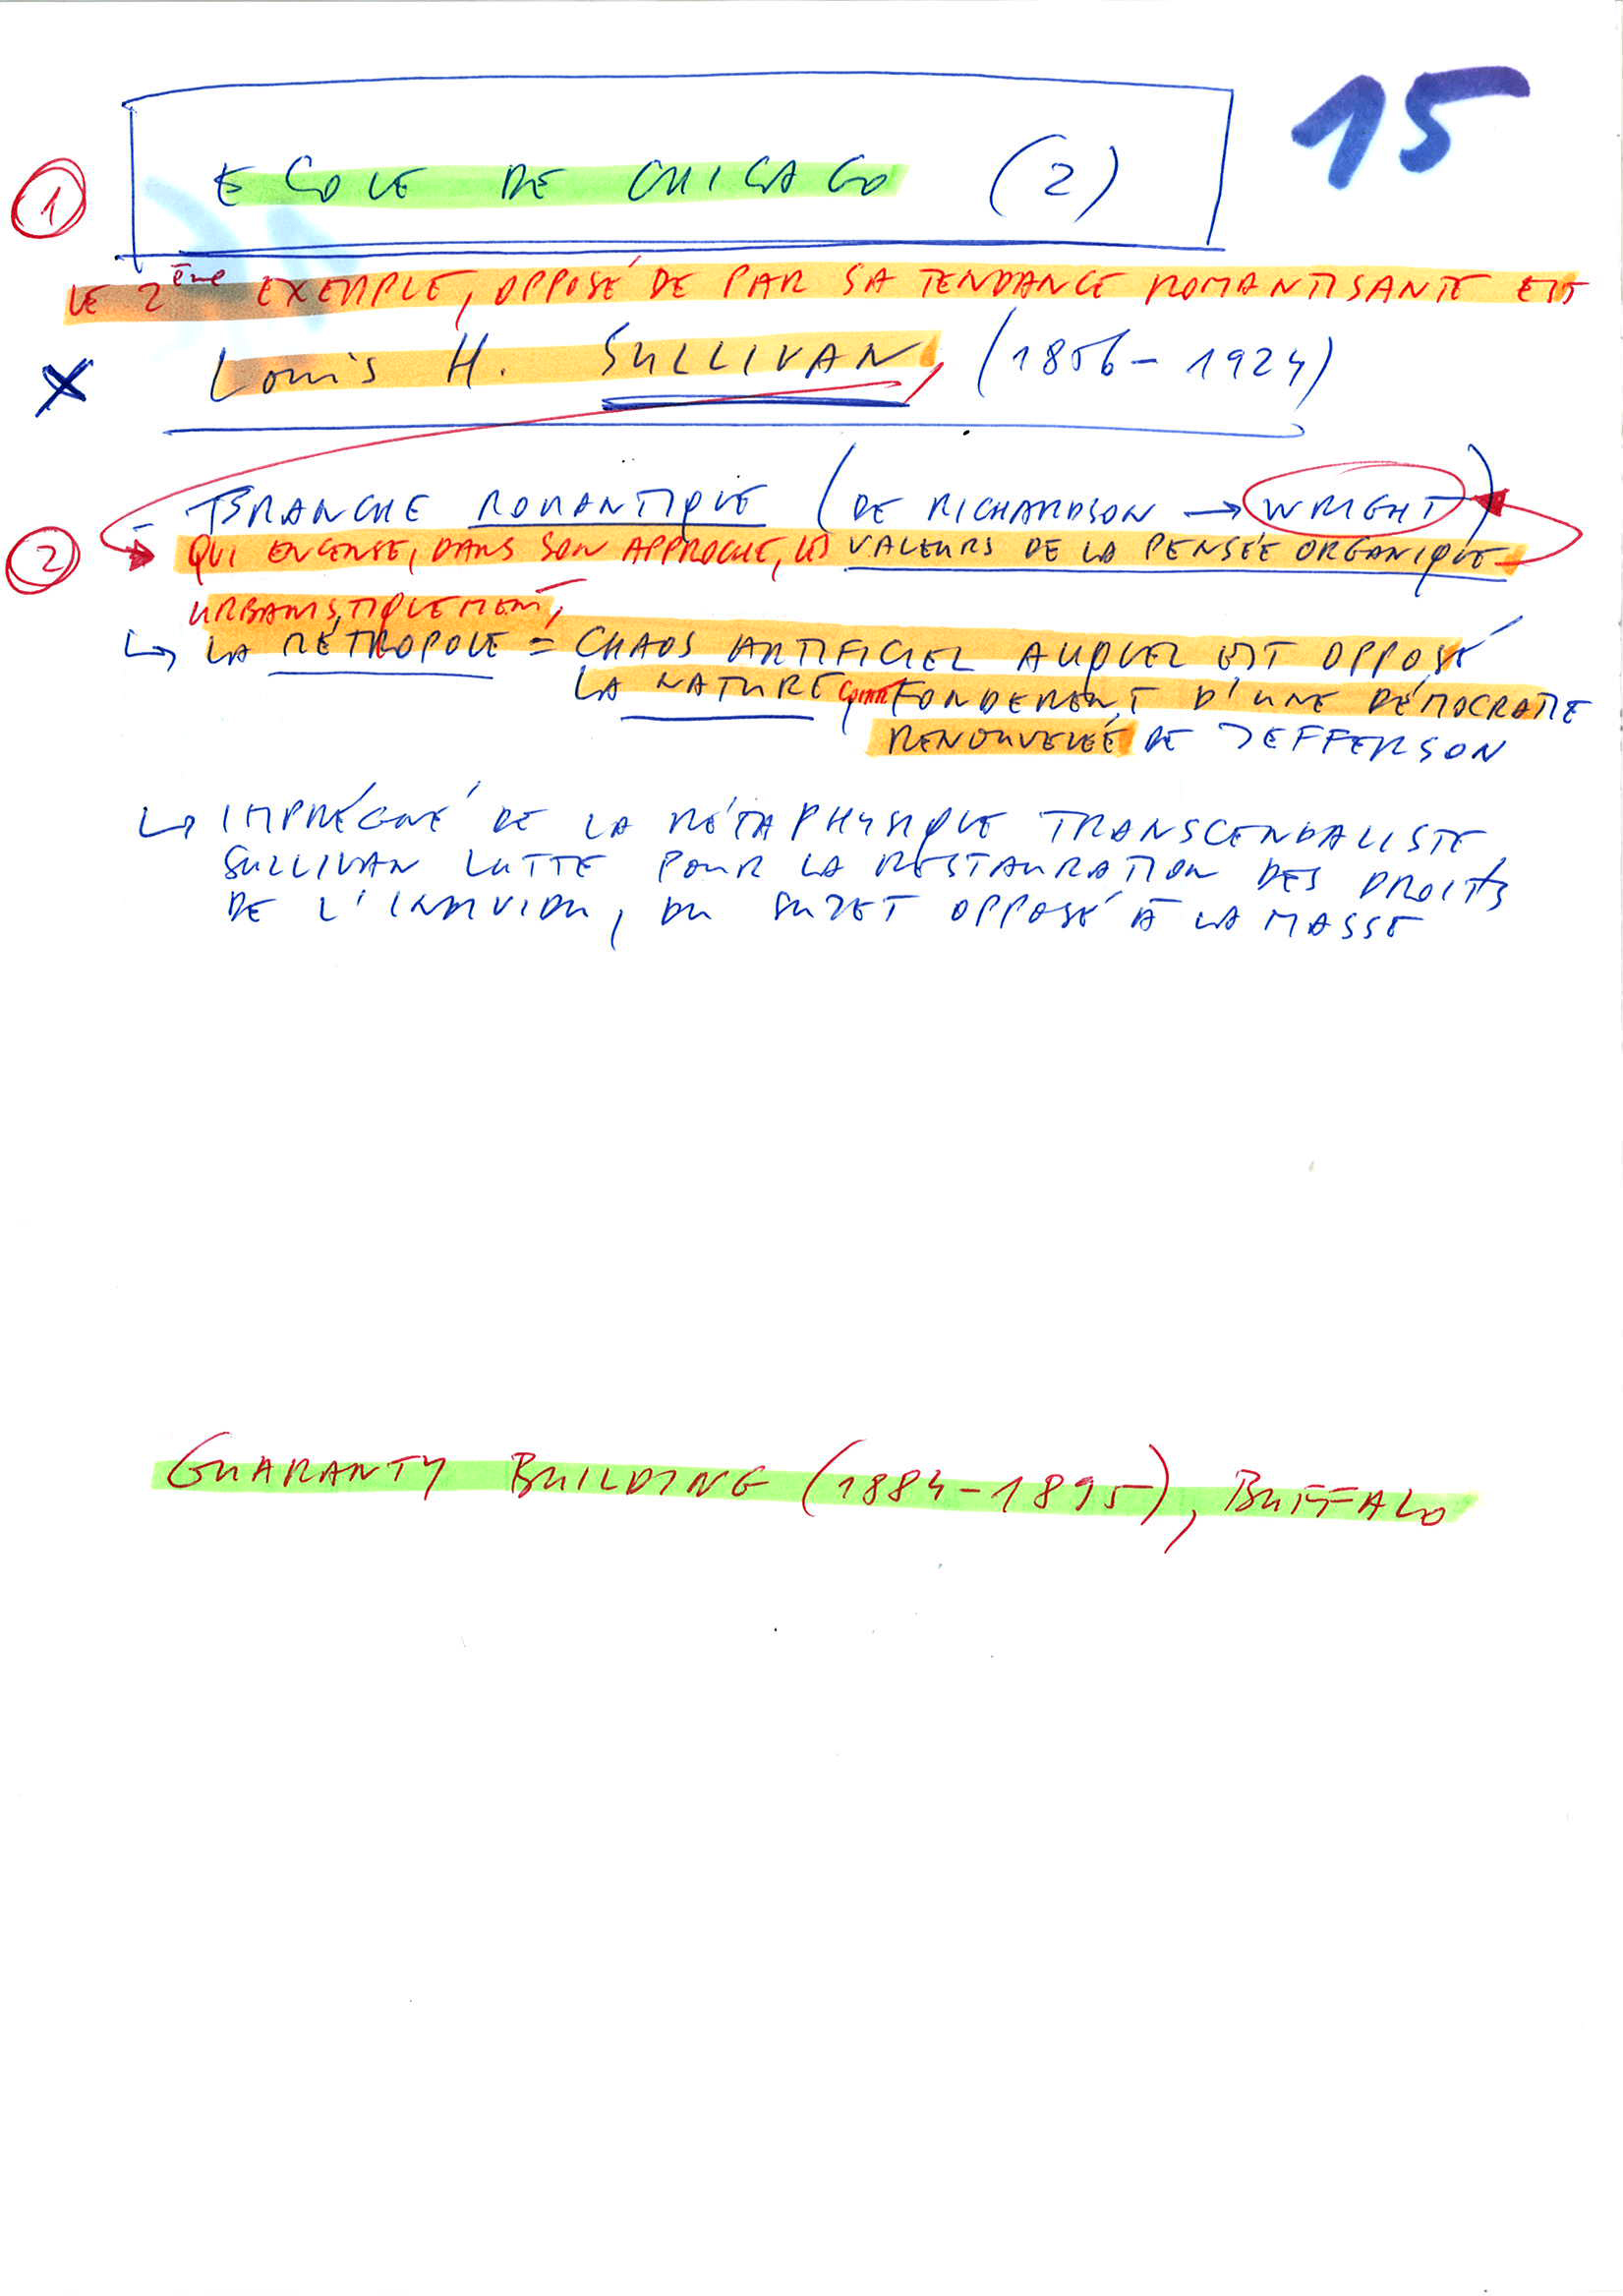 15
① ECOLE DE CHICAGO (2)
LE 2ème EXEMPLE, OPPOSÉ DE PAR SA TENDANCE ROMANTISANTE EST
X Louis H. SULLIVAN, (1856-1924)
- BRANCHE ROMANTIQUE (DE RICHARDSON → WRIGHT)
② QUI ENCENSE, DANS SON APPROCHE, LES VALEURS DE LA PENSÉE ORGANIQUE
URBANISTIQUEMENT,
↳ LA MÉTROPOLE = CHAOS ARTIFICIEL AUQUEL EST OPPOSÉ
LA NATURE, comme FONDEMENT D'UNE DÉMOCRATIE
RENOUVELÉE DE JEFFERSON
↳ IMPRÉGNÉ DE LA MÉTAPHYSIQUE TRANSCENDALISTE
SULLIVAN LUTTE POUR LA RESTAURATION DES DROITS
DE L'INDIVIDU, DU SUJET OPPOSÉ À LA MASSE
GUARANTY BUILDING (1884-1895), BUFFALO